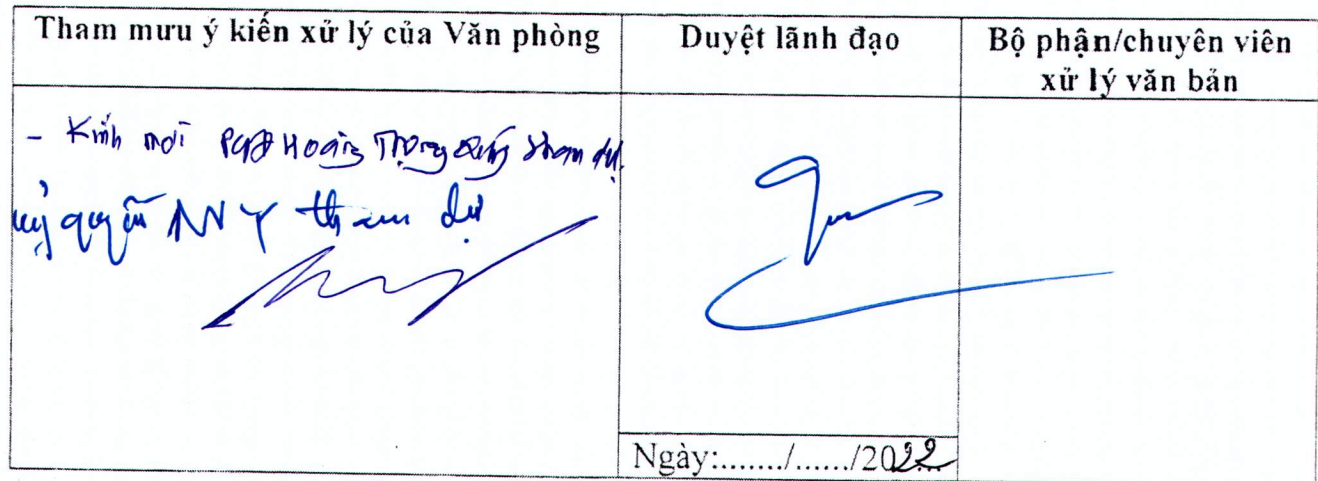 Tham mưu ý kiến xử lý của Văn phòng
Duyệt lãnh đạo
Bộ phận/chuyên viên
xử lý văn bản
- Kính mời PGĐ Hoàng Trọng Quý tham dự.
uỷ quyền NVY tham dự
Ngày:......./....../2022